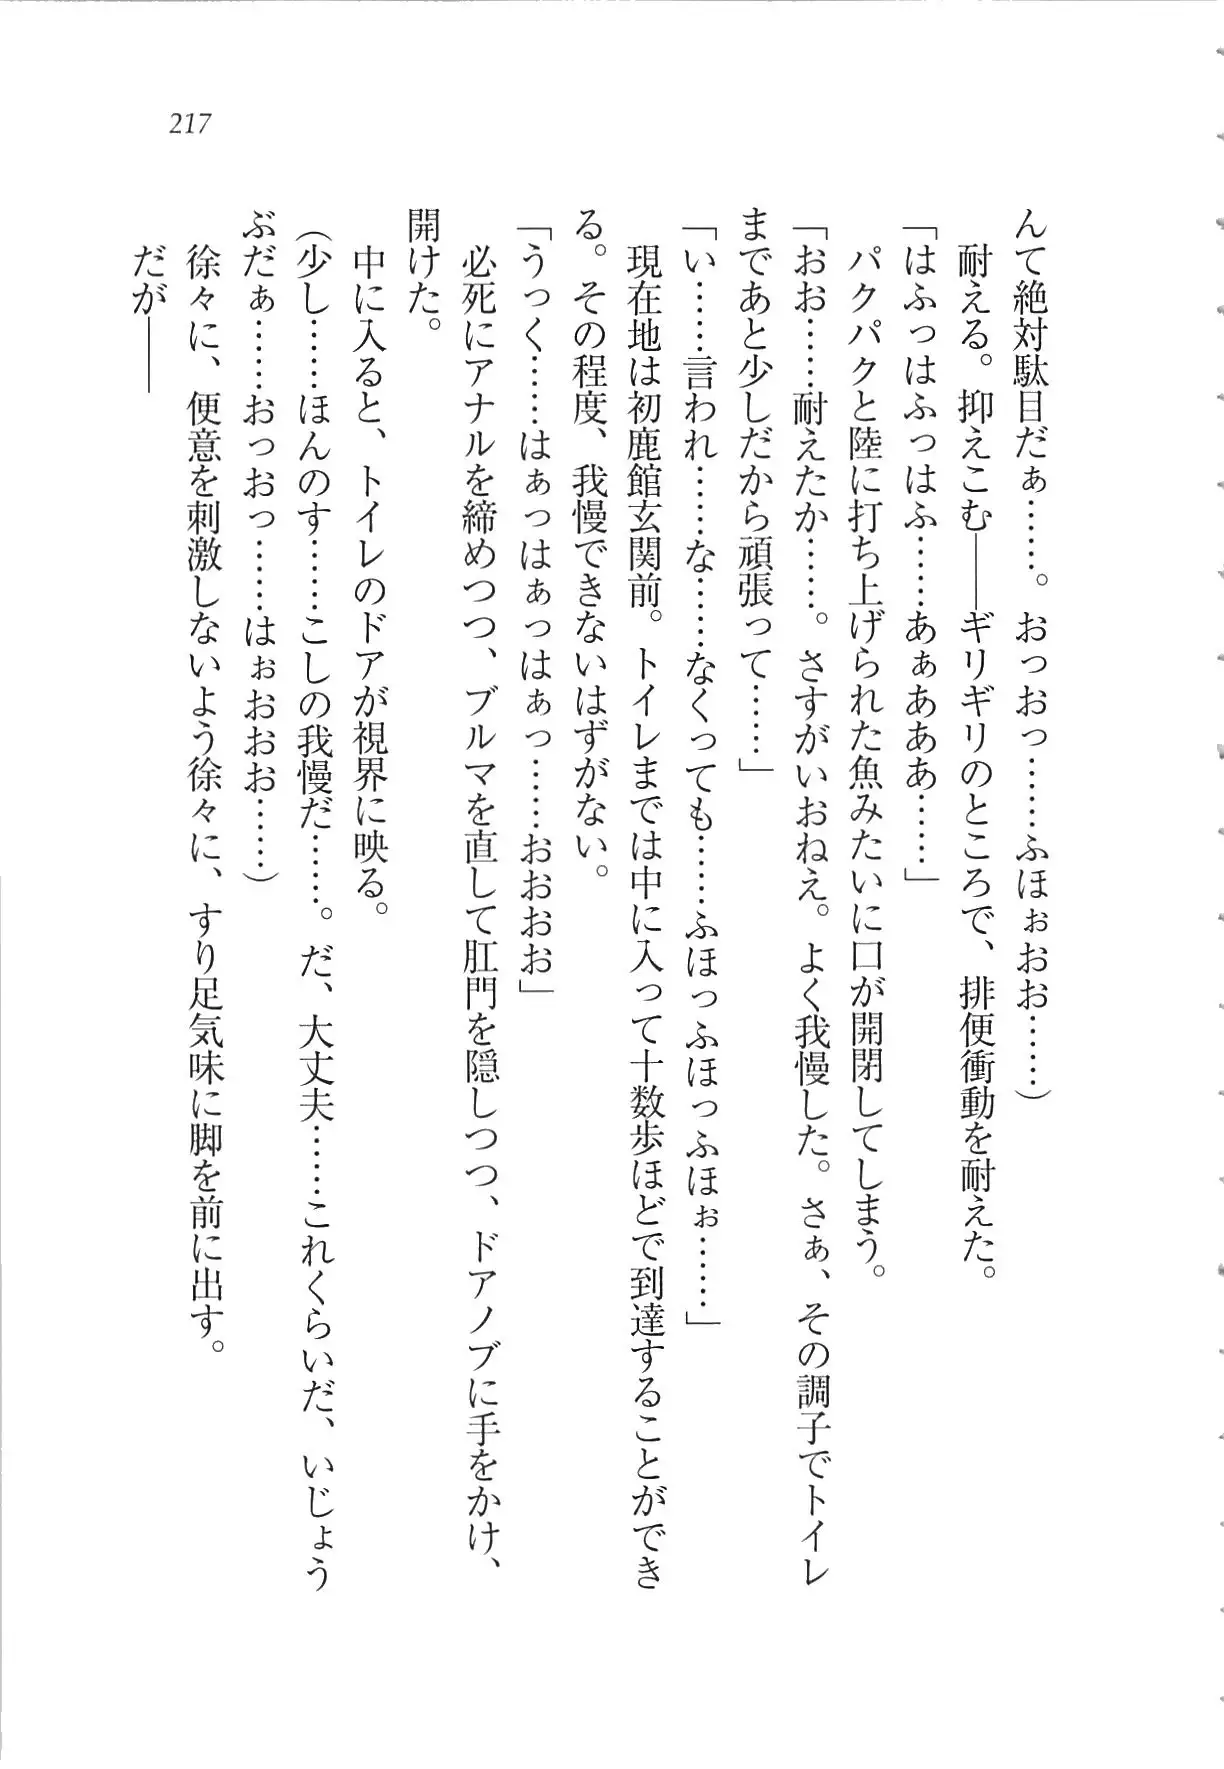 217
んて絶対駄目だぁ……。おっおっ……ふほぉおお……）
　耐える。抑えこむ――ギリギリのところで、排便衝動を耐えた。
「はふっはふっはふ……あぁあああ……」
　パクパクと陸に打ち上げられた魚みたいに口が開閉してしまう。
「おお……耐えたか……。さすがいおねえ。よく我慢した。さぁ、その調子でトイレ
まであと少しだから頑張って……」
「い……言われ……な……なくっても……ふほっふほっふほぉ……」
　現在地は初鹿館玄関前。トイレまでは中に入って十数歩ほどで到達することができ
る。その程度、我慢できないはずがない。
「うっく……はぁっはぁっはぁっ……おおおお」
　必死にアナルを締めつつ、ブルマを直して肛門を隠しつつ、ドアノブに手をかけ、
開けた。
　中に入ると、トイレのドアが視界に映る。
（少し……ほんのす……こしの我慢だ……。だ、大丈夫……これくらいだ、いじょう
ぶだぁ……おっおっ……はぉおおお……）
　徐々に、便意を刺激しないよう徐々に、すり足気味に脚を前に出す。
　だが――